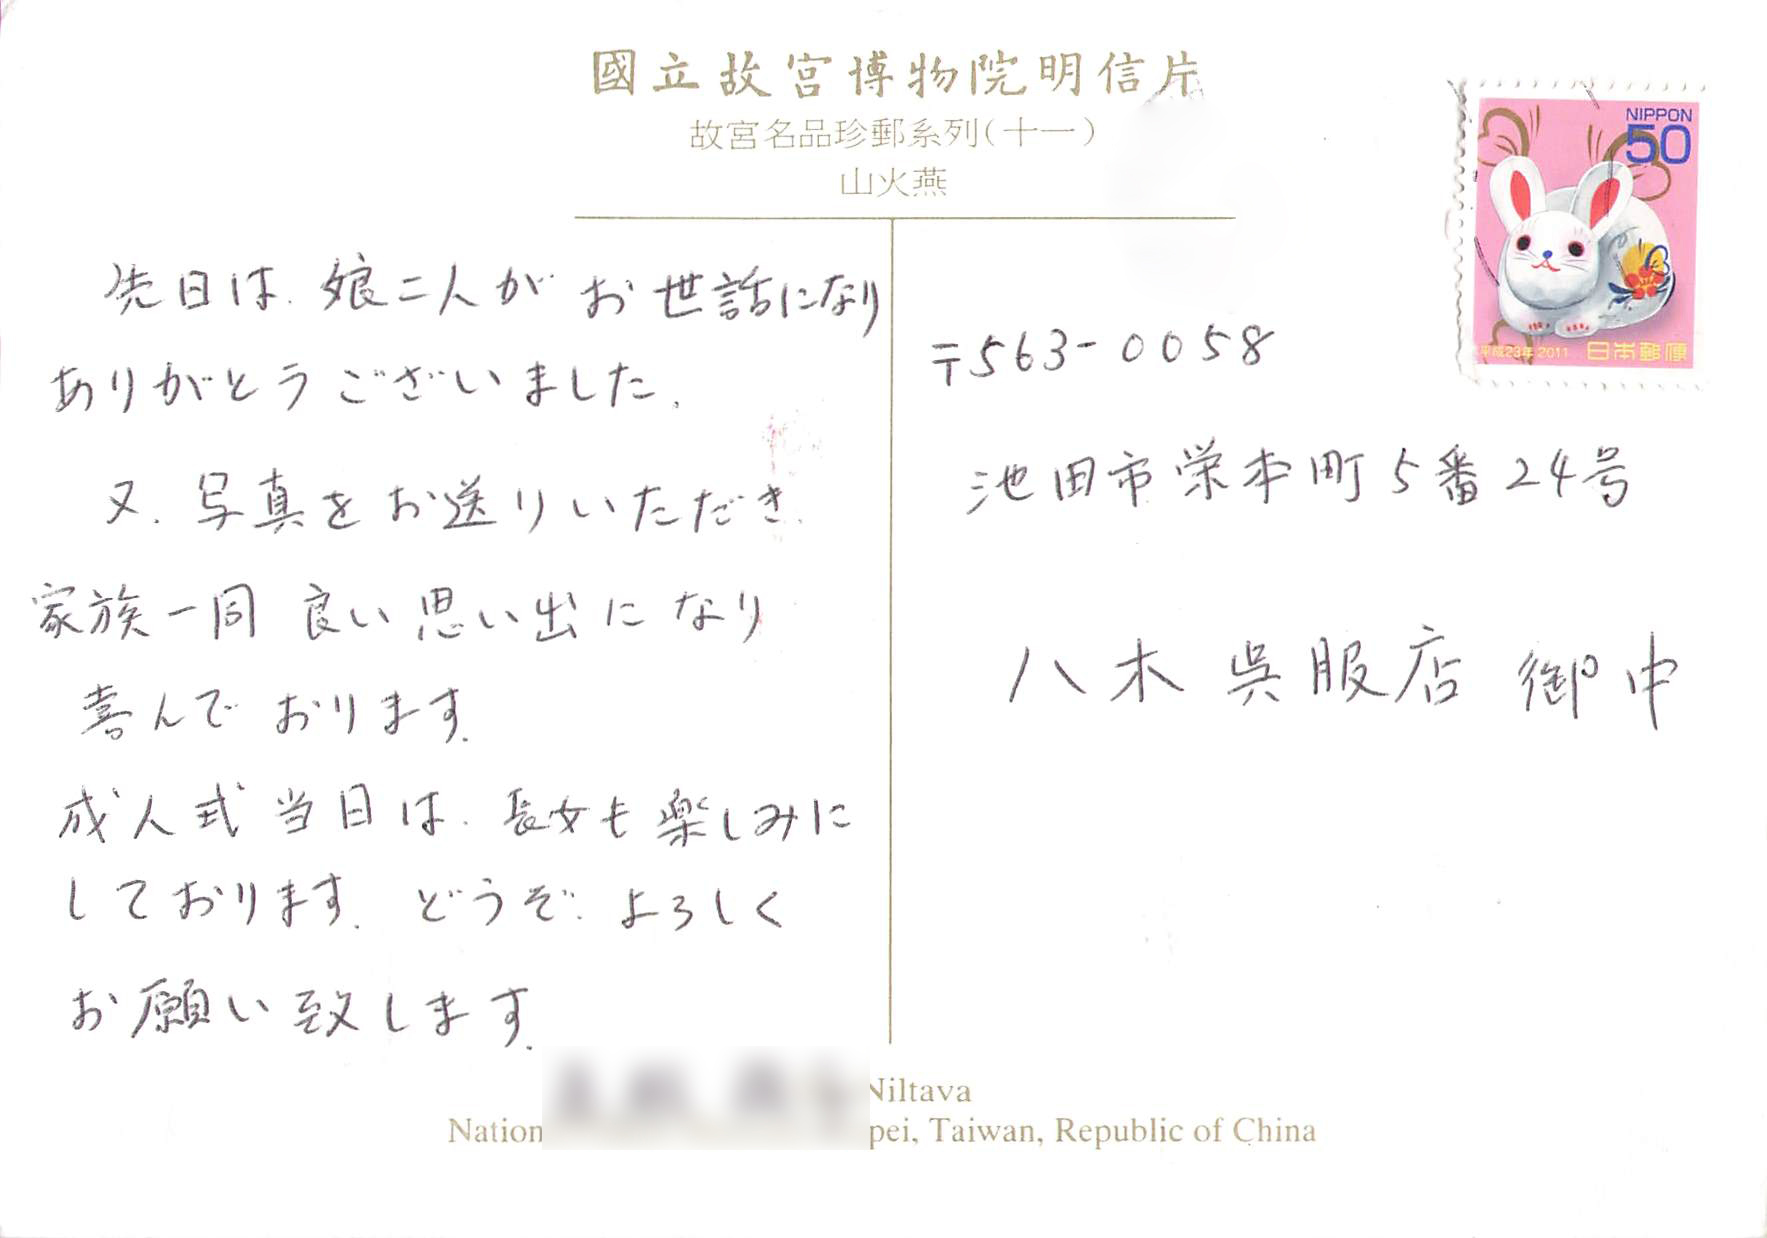 國立故宮博物院明信片
故宮名品珍郵系列(十一)
山火燕
NIPPON
50
平成23年 2011 日本郵便
先日は、娘二人がお世話になり
ありがとうございました。
又、写真をお送りいただき、
家族一同 良い思い出になり
喜んでおります。
成人式当日は、長女も楽しみに
しております。どうぞ、よろしく
お願い致します。
〒563-0058
池田市栄本町5番24号
八木呉服店 御中
Niltava
Nation
pei, Taiwan, Republic of China